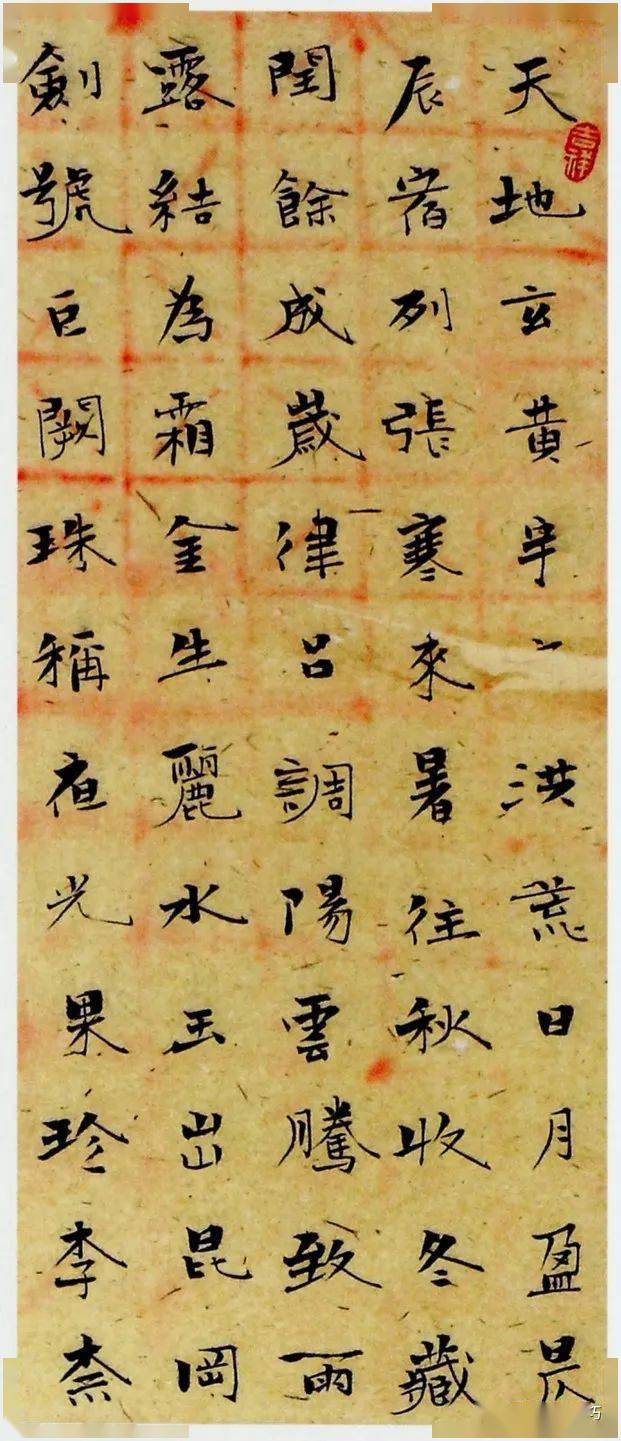 天地玄黄宇洪荒日月盈昃
辰宿列張寒來暑往秋收冬藏
閏餘成歲律呂調陽雲騰致雨
露結為霜金生麗水玉出昆岡
劍號巨闕珠稱夜光果珍李柰
吉祥